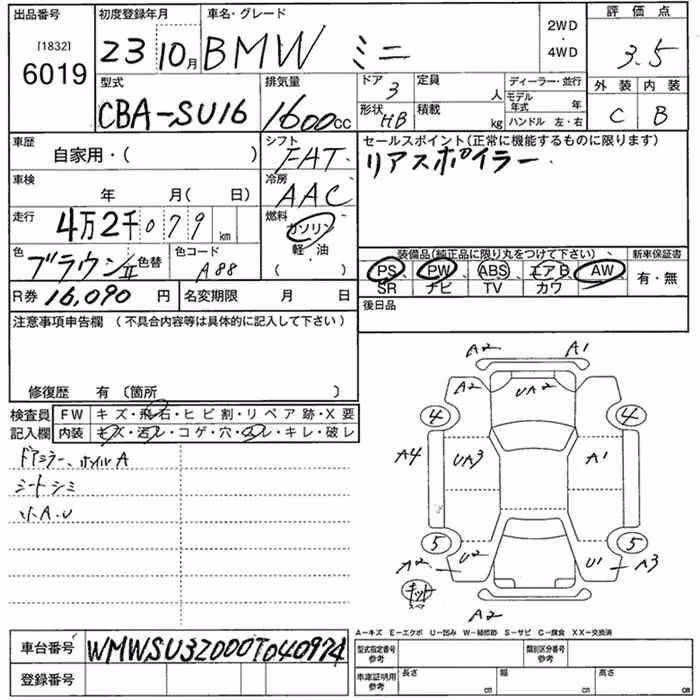 出品番号 初度登録年月 車名・グレード 評価点
[1832]
6019 23 10月 BMW ミニ 2WD 4WD 3.5
型式 排気量 ドア 3 定員 人 ディーラー・並行 外装 内装
モデル年式 年
CBA-SU16 1600cc 形状 HB 積載 kg ハンドル 左・右 C B
車歴 自家用・( ) シフト FAT セールスポイント(正常に機能するものに限ります)
リアスポイラー
車検 年 月( 日) 冷房 AAC
走行 4万2千079 km 燃料 ガソリン 軽・油 ( )
色 ブラウンII 色替 色コード A88
装備品(純品に限り丸をつけて下さい) 新車保証書
PS PW ABS エアB AW 有・無
SR ナビ TV カワ
R券 16,090 円 名変期限 月 日 後日品
注意事項申告欄 (不具合内容等は具体的に記入して下さい)
修復歴 有 〔箇所 〕
検査員 FW キズ・飛石・ヒビ割・リペア跡・X要
記入欄 内装 キズ・汚レ・コゲ・穴・スレ・キレ・破レ
ドアミラー、ホイルA
シートシミ
小A.U
A2 A1
A2 UA2
4 4
A4 UA3 A1
5 5
A2 U2 U1 A3
キット
スペア
A2
A-キズ E-エクボ U-凹み W-補修跡 S-サビ C-腐食 XX-交換済
車台番号 WMWSU32000T040974
登録番号
型式指定番号 参考 類別区分番号 参考
車庫証明用 参考 長さ cm 幅 cm 高さ cm